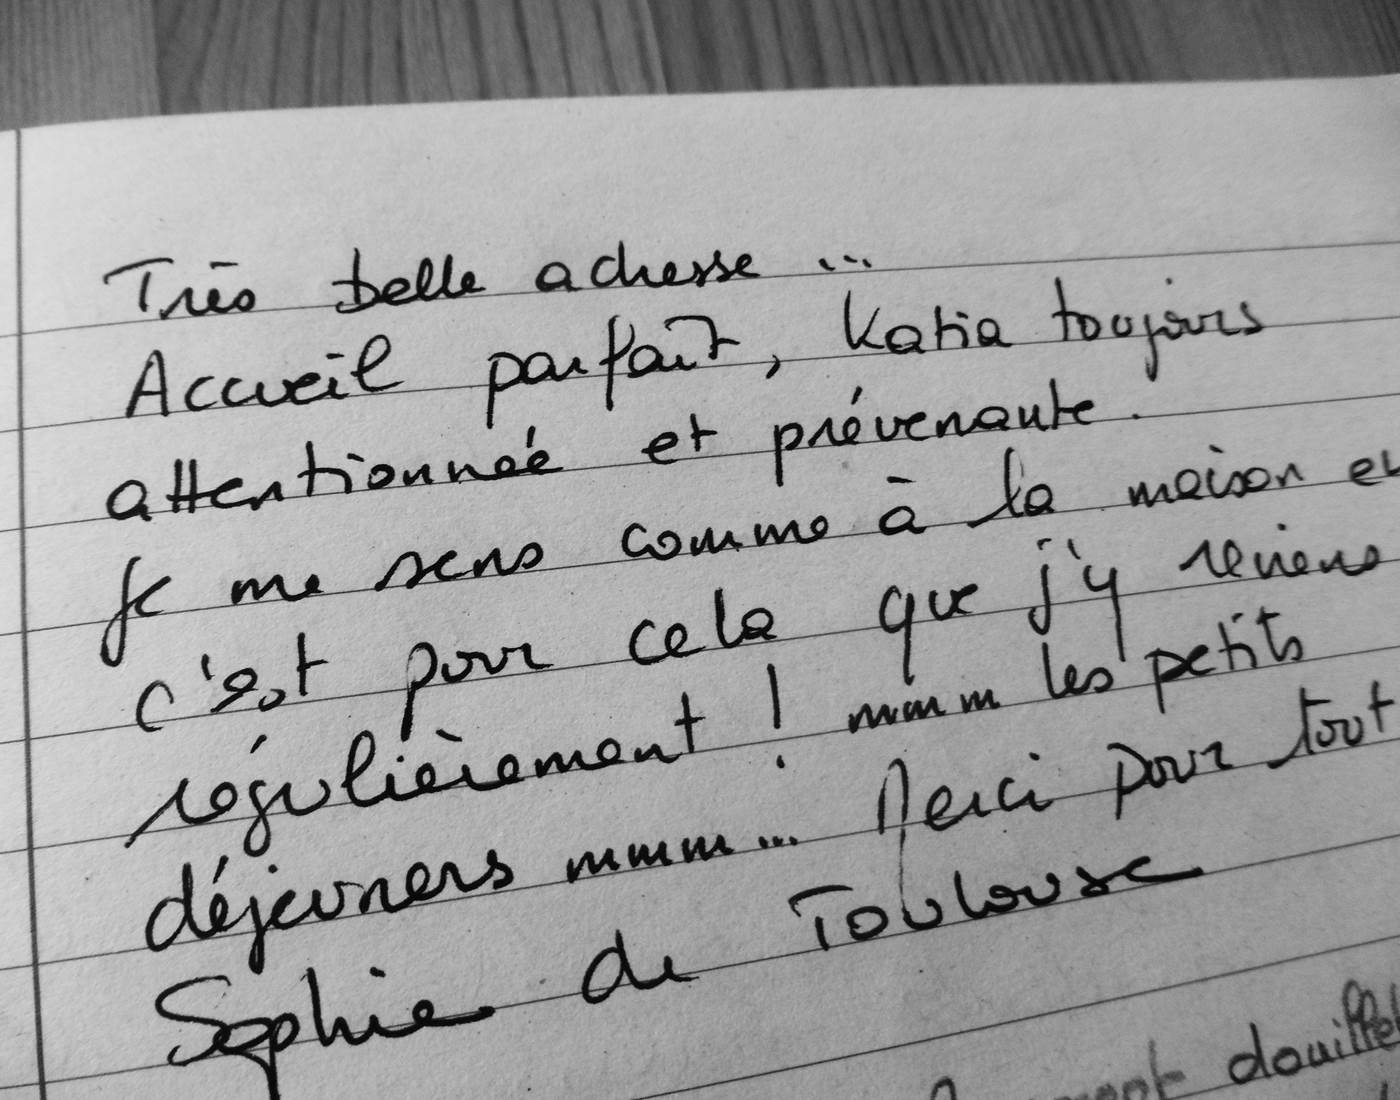 Très belle adresse ...
Accueil parfait, Katia toujours
attentionnée et prévenante.
Je me sens comme à la maison et
c'est pour cela que j'y reviens
régulièrement ! mmm les petits
déjeuners mmmm... Merci pour tout
Sophie de Toulouse